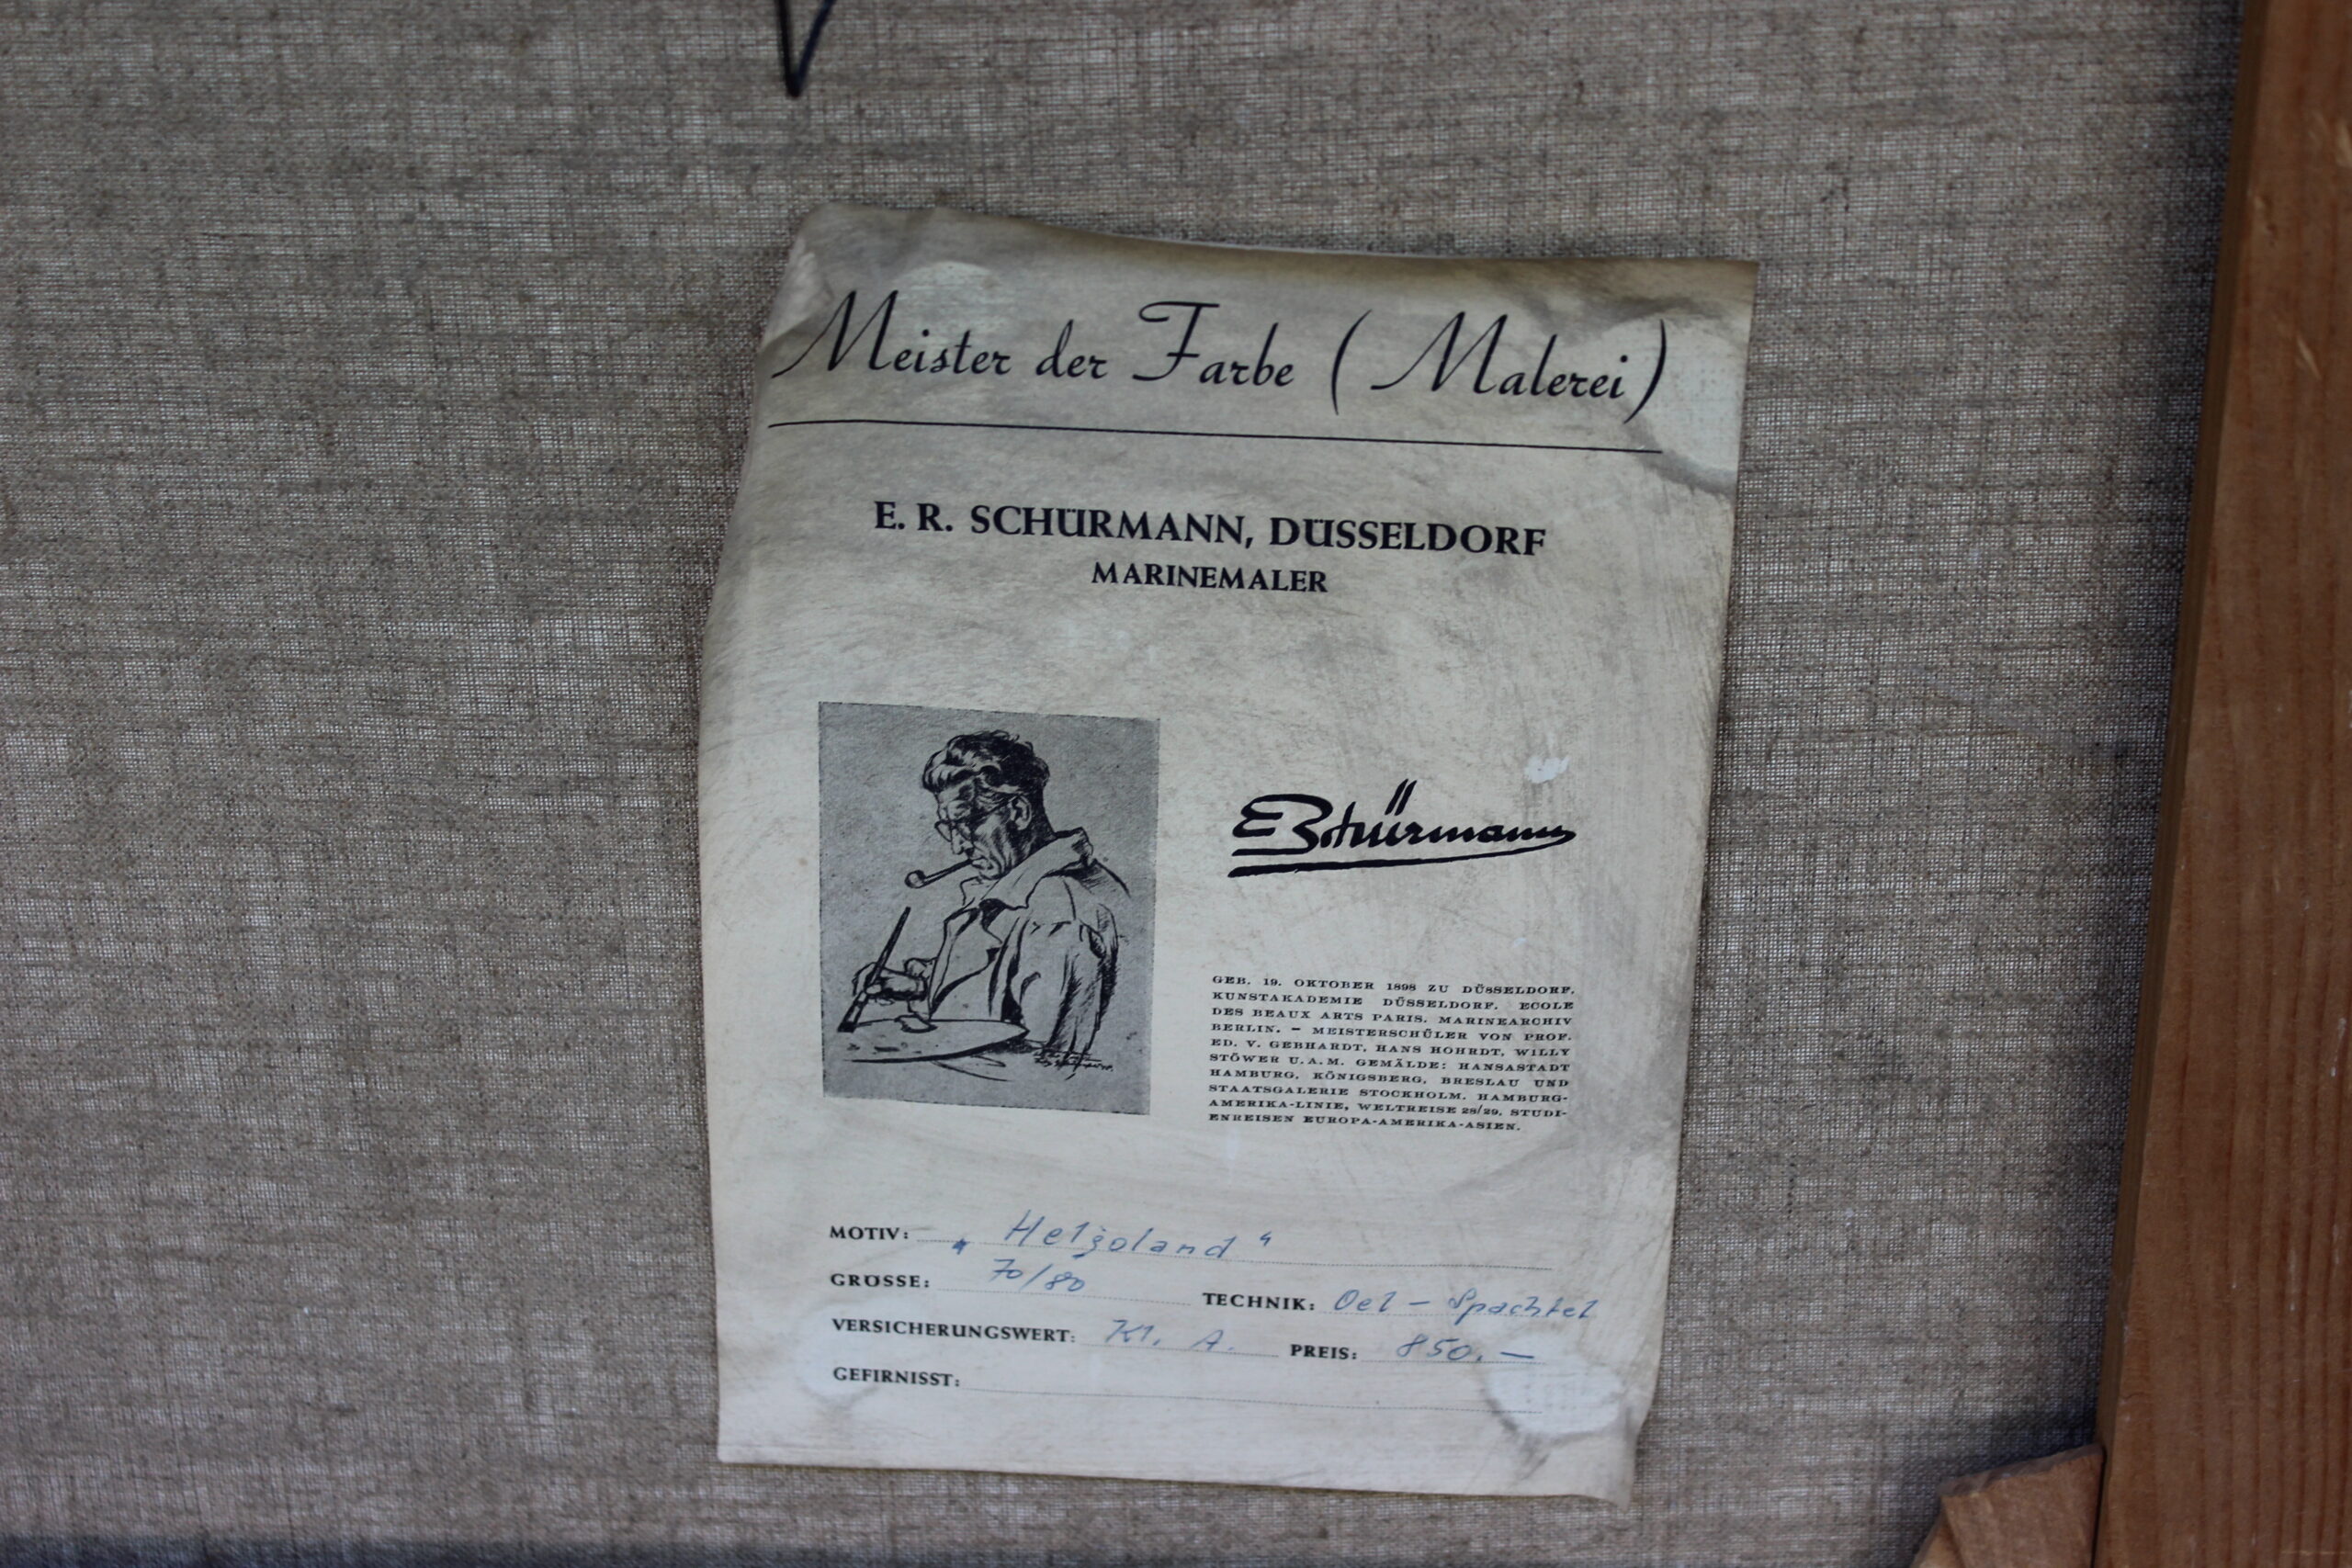 Meister der Farbe (Malerei)
E. R. SCHÜRMANN, DÜSSELDORF
MARINEMALER
E Schürmann
GEB. 19. OKTOBER 1898 ZU DÜSSELDORF.
KUNSTAKADEMIE DÜSSELDORF. ECOLE
DES BEAUX ARTS PARIS. MARINEARCHIV
BERLIN. – MEISTERSCHÜLER VON PROF.
ED. V. GEBHARDT, HANS BOHRDT, WILLY
STÖWER U.A.M. GEMÄLDE: HANSASTADT
HAMBURG, KÖNIGSBERG, BRESLAU UND
STAATSGALERIE STOCKHOLM. HAMBURG-
AMERIKA-LINIE, WELTREISE 28/29. STUDI-
ENREISEN EUROPA-AMERIKA-ASIEN.
MOTIV: „Helgoland“
GRÖSSE: 70/80 TECHNIK: Oel – Spachtel
VERSICHERUNGSWERT: Kl. A. PREIS: 850.–
GEFIRNISST: